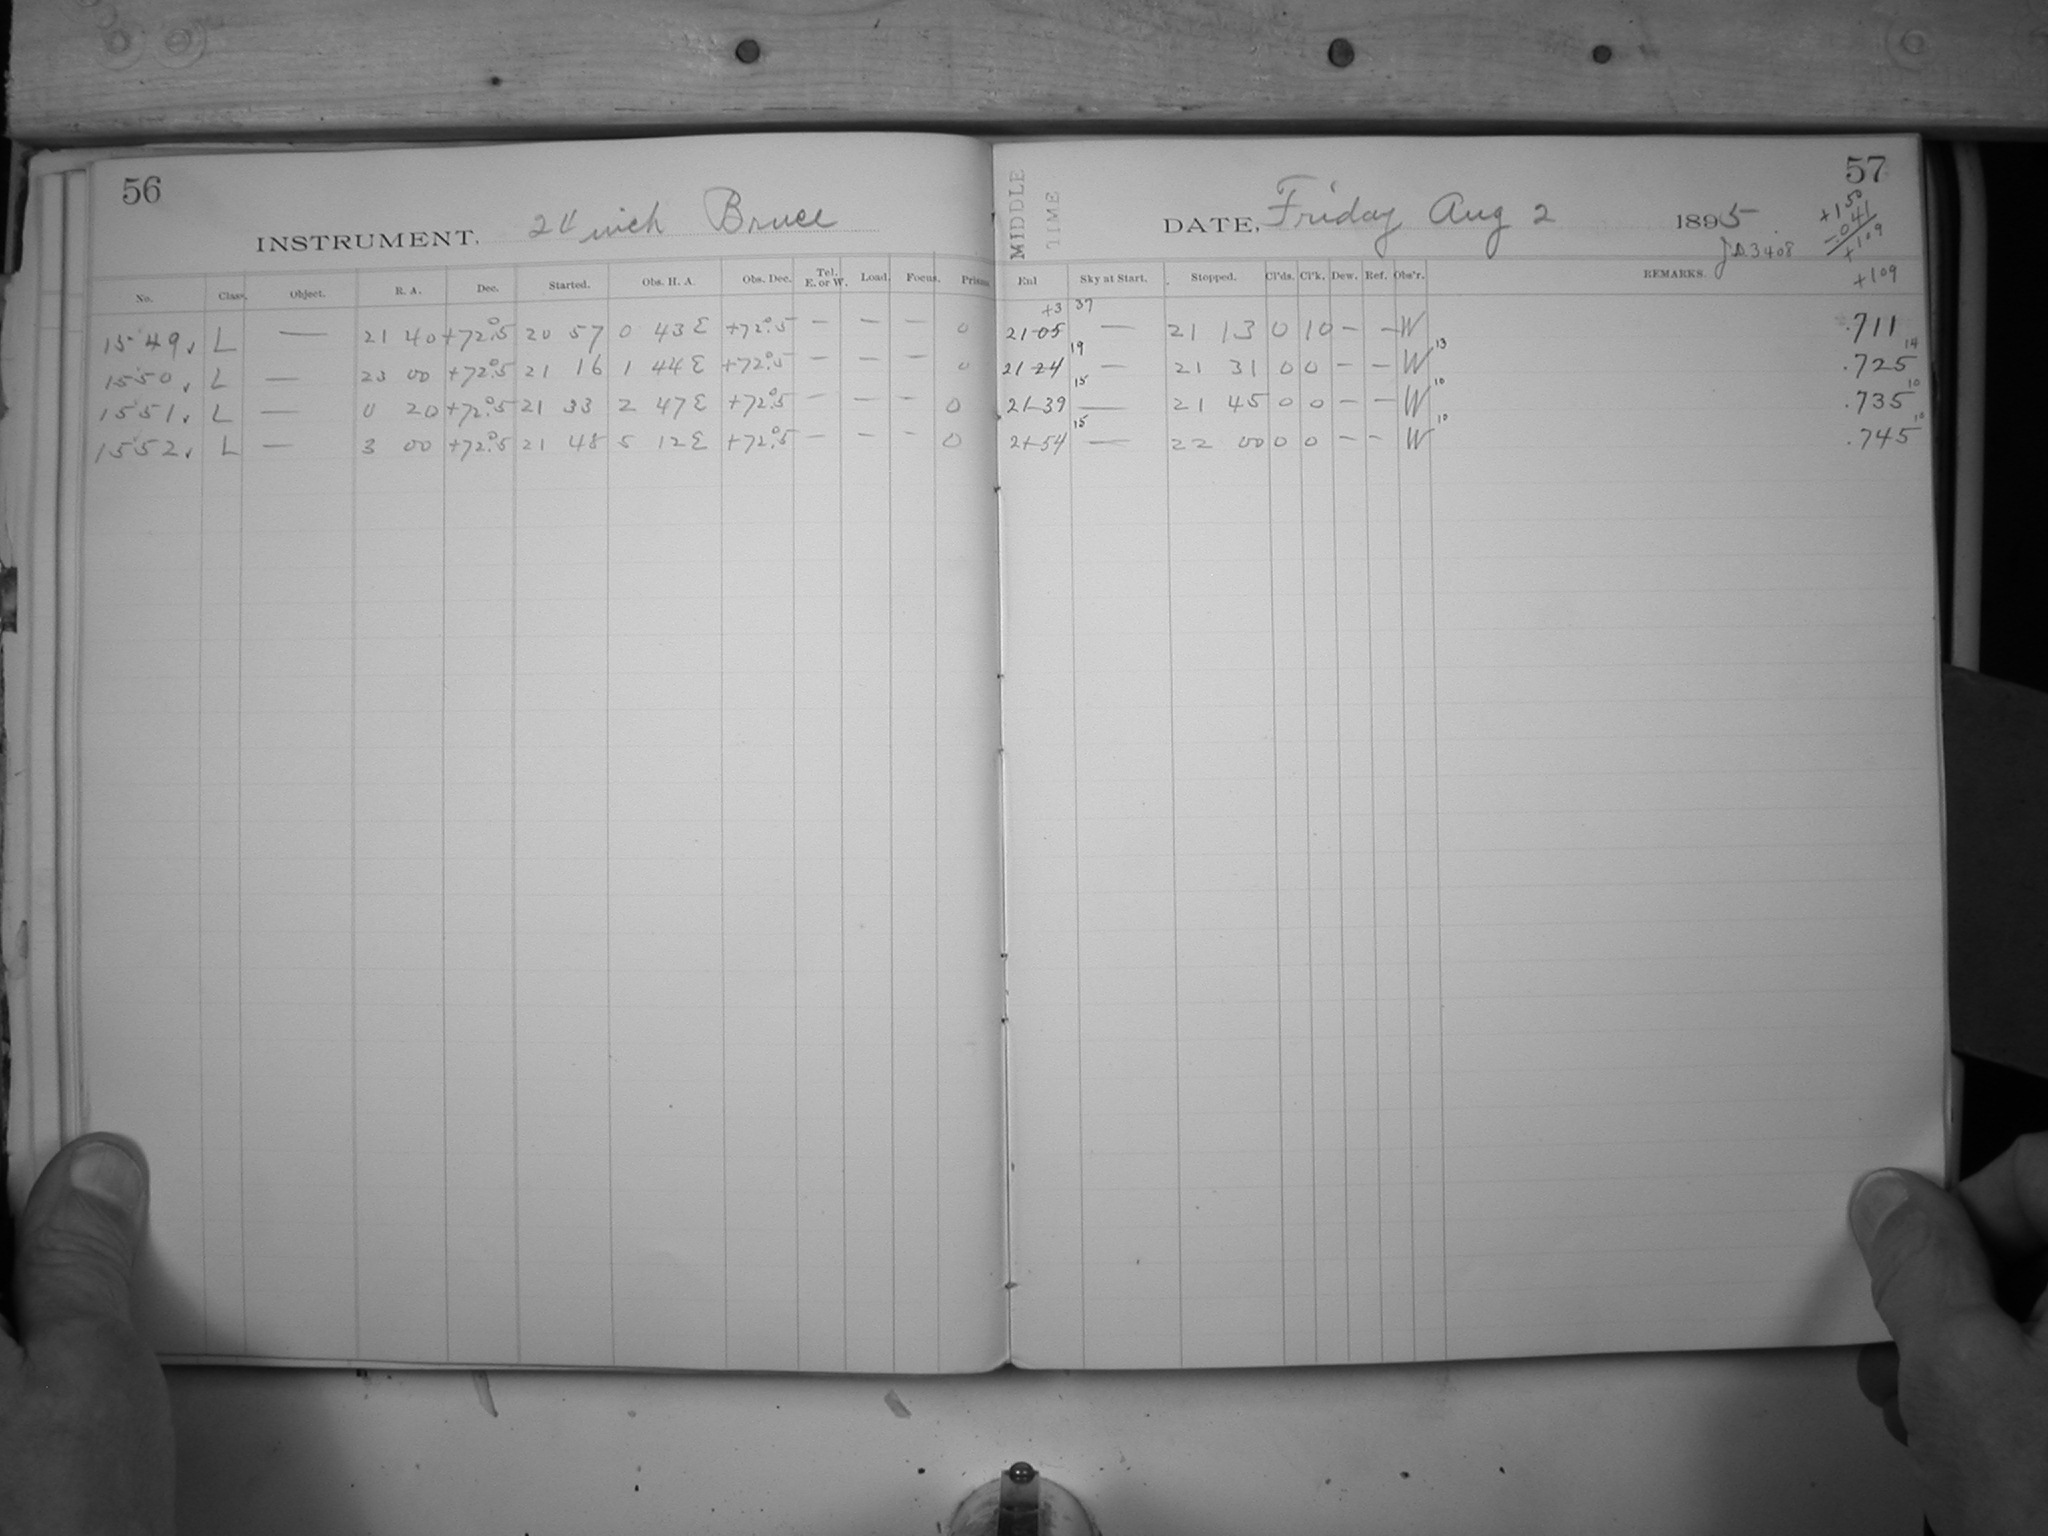 56
INSTRUMENT, 24 inch Bruce
No. Class. Object. R. A. Dec. Started. Obs. H. A. Obs. Dec. Tel. E. or W. Load. Focus. Prisms
1549. L — 21 40 +72°.5 20 57 0 43 E +72°.5 — — — 0
1550. L — 23 00 +72°.5 21 16 1 44 E +72°.5 — — — 0
1551. L — 0 20 +72°.5 21 33 2 47 E +72°.5 — — — 0
1552. L — 3 00 +72°.5 21 48 5 12 E +72°.5 — — — 0
57
MIDDLE TIME
DATE, Friday Aug 2 1895
J.D. 3408
+150
-041
+109
+109
Sky at Start. Stopped. Cl'ds. Cl'k. Dew. Ref. Obs'r. REMARKS.
+3 37
21-05 — 21 13 0 10 — — W .711
19 13 14
21-24 — 21 31 0 0 — — W .725
15 10 10
21-39 — 21 45 0 0 — — W .735
15 10 10
21-54 — 22 00 0 0 — — W .745